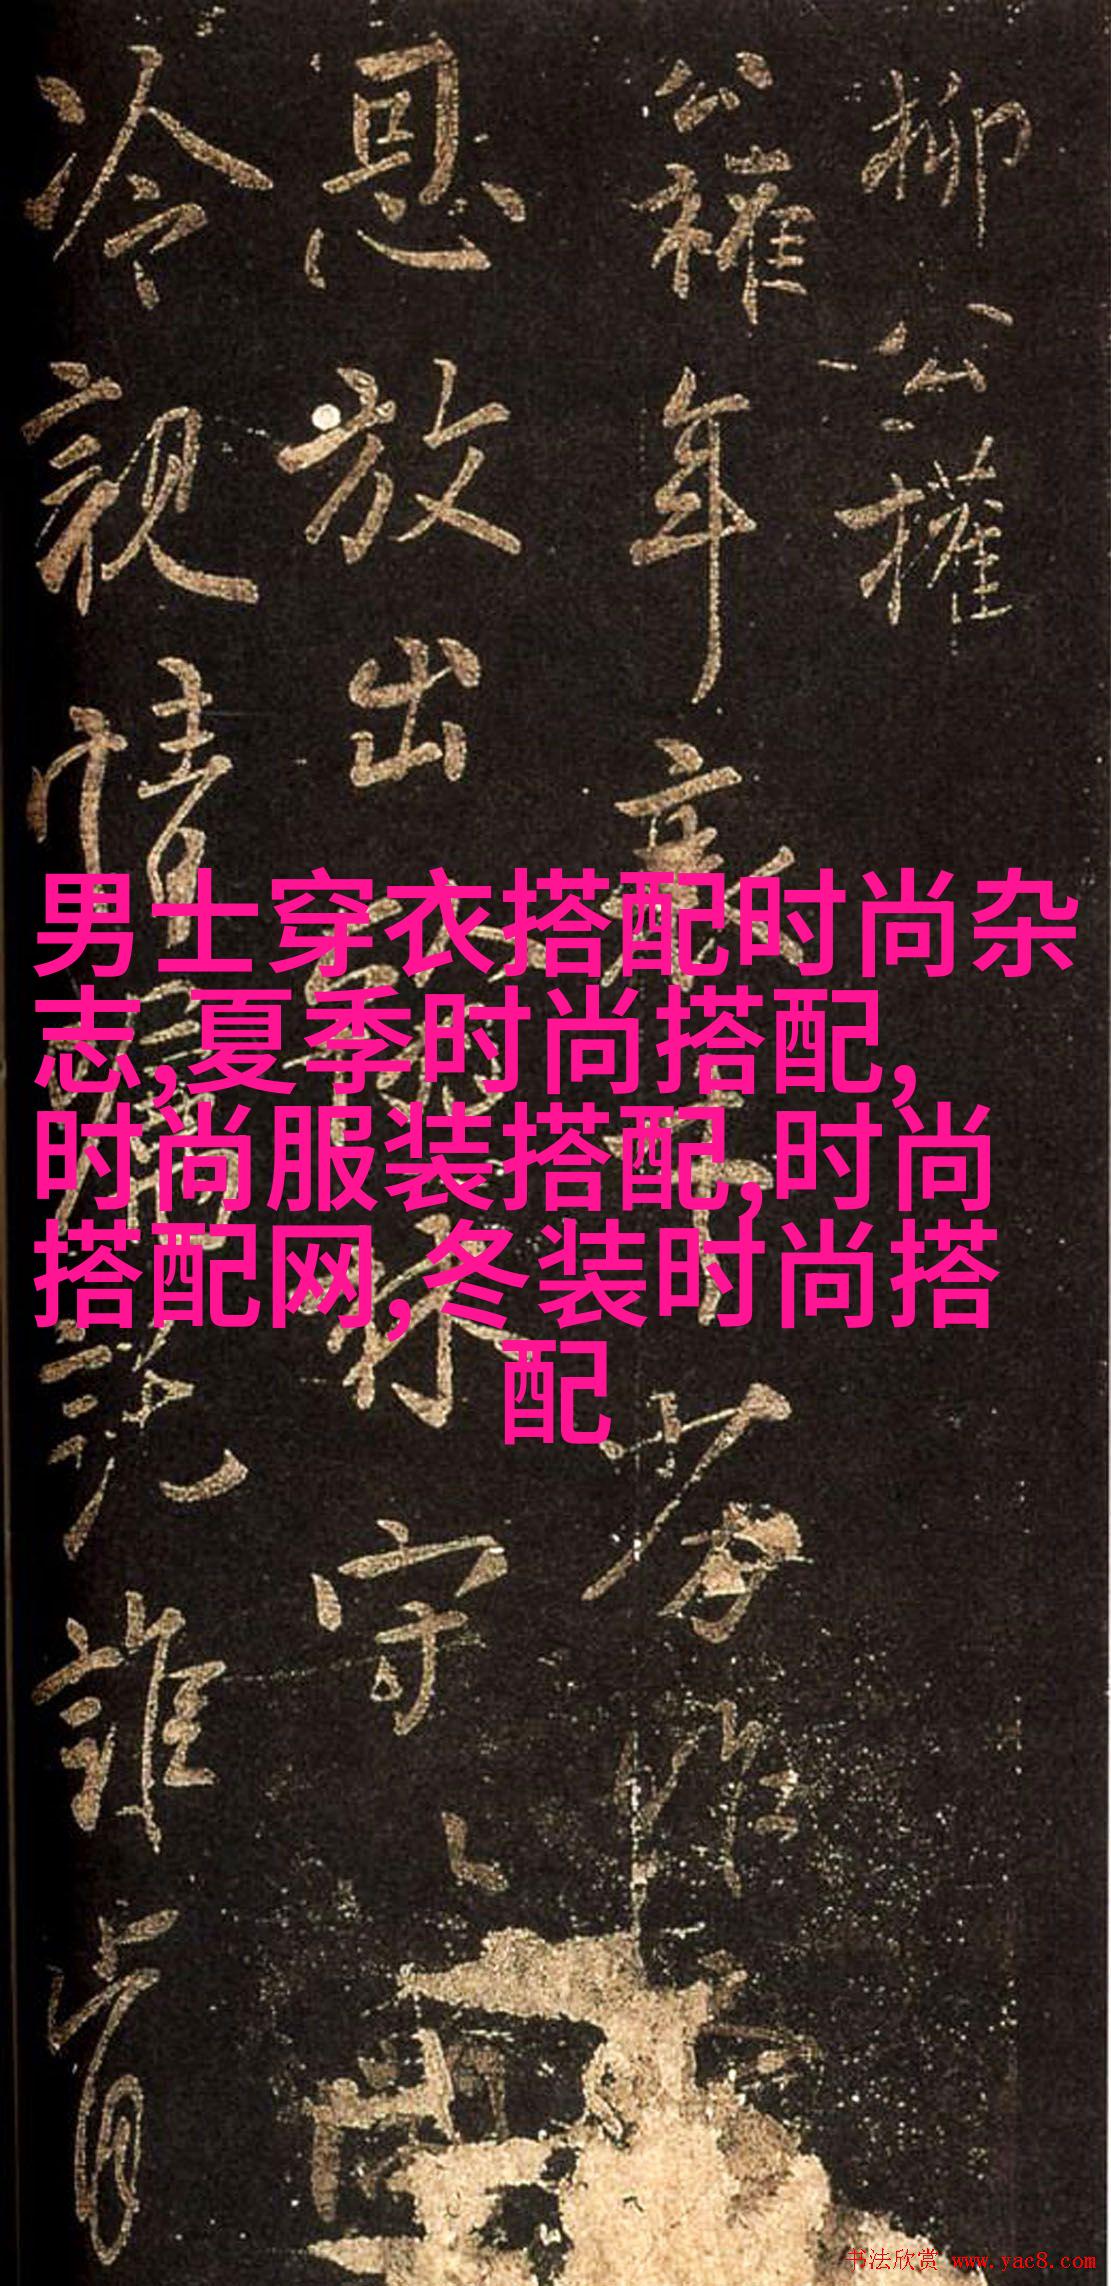 柳公權
公權年衰才劣昨
恩放出翰林守以
冷親情囑託誰肯
男士穿衣搭配时尚杂
志,夏季时尚搭配,
时尚服装搭配,时尚
搭配网,冬装时尚搭
配
书法欣赏 www.yac8.com